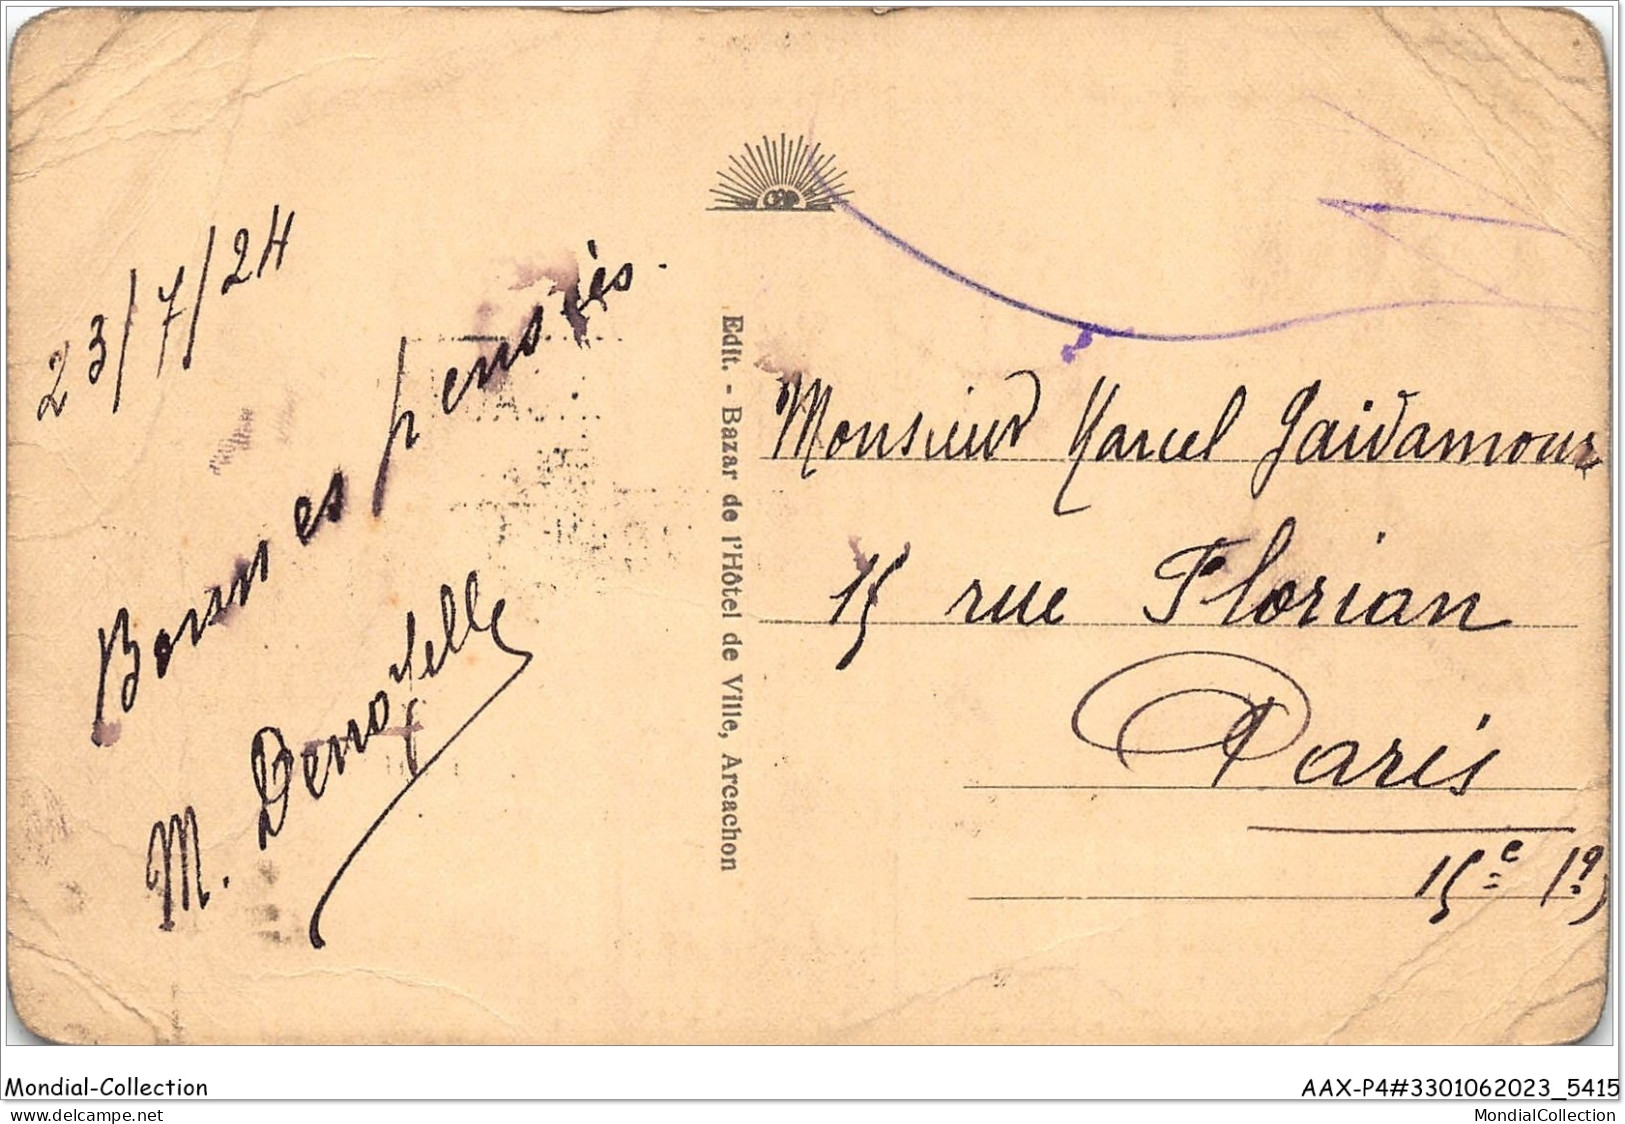 23/7/24
Bonnes pensées.
M.
Edit. - Bazar de l'Hôtel de Ville, Arcachon
Monsieur Marcel Gaidamour
15 rue Florian
Paris
15e
Mondial-Collection
AAX-P4#3301062023_5415
MondialCollection